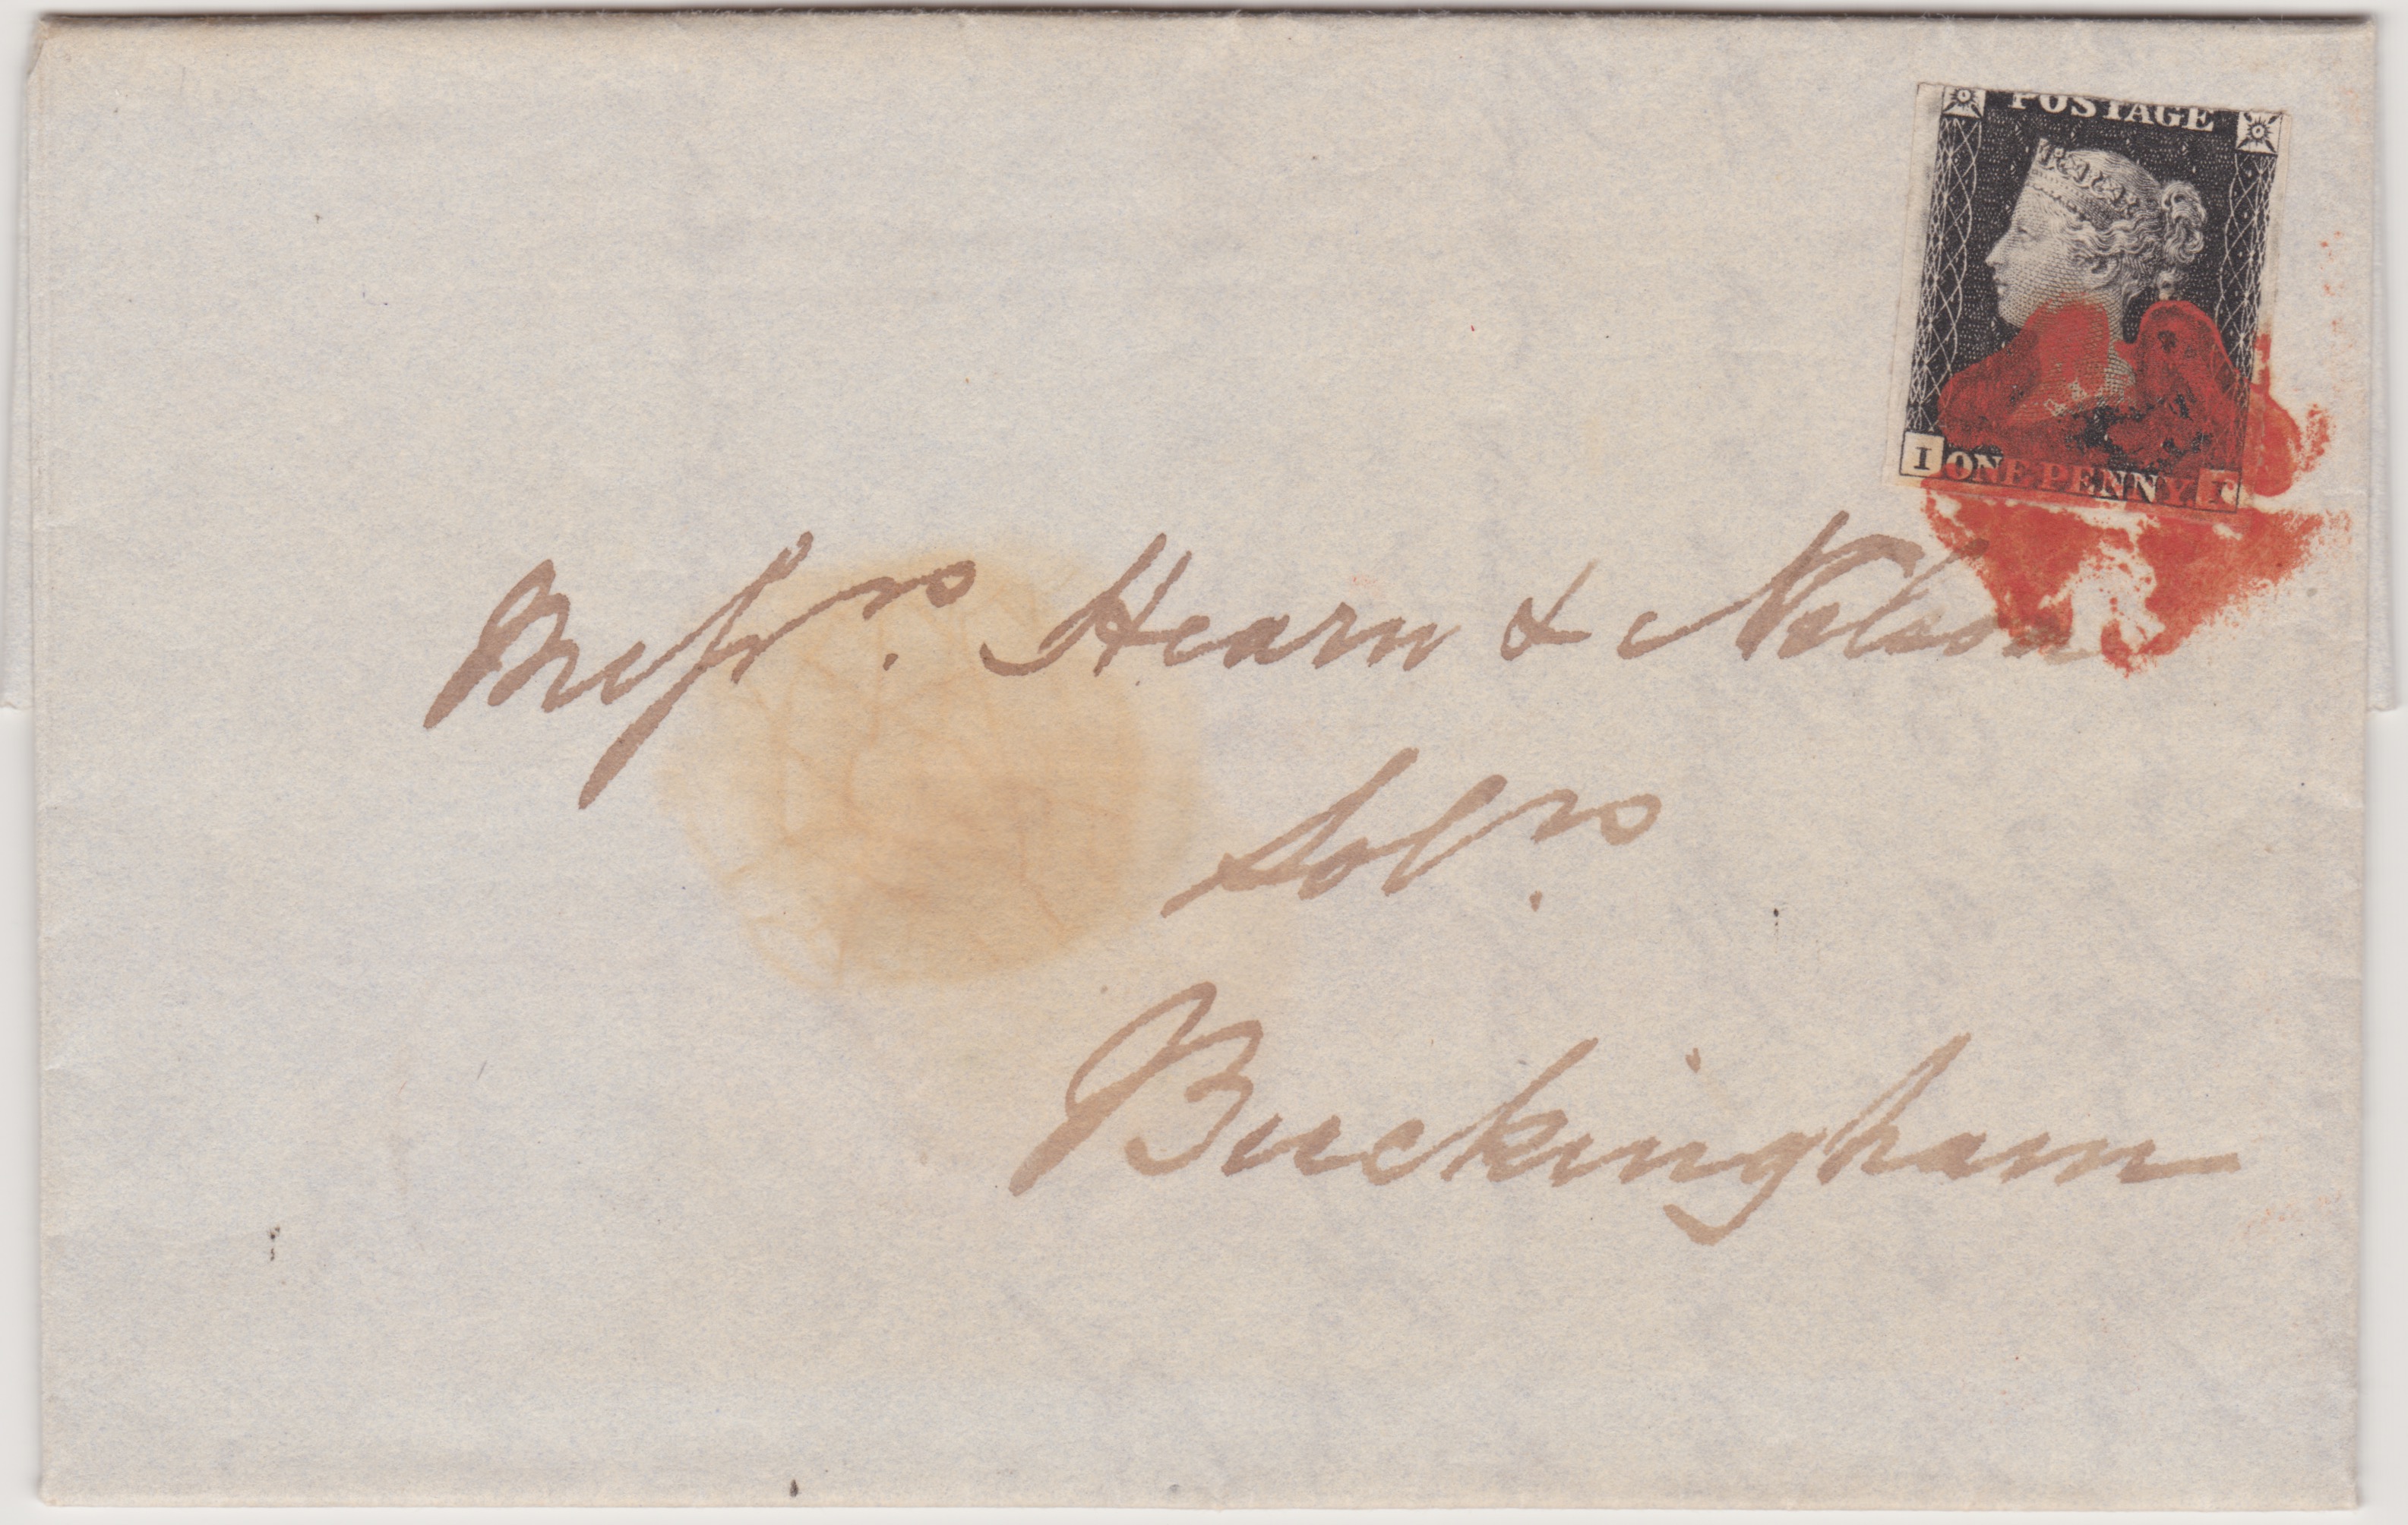 POSTAGE
I ONE PENNY I
Messrs. Hearn & Nelson
Solrs.
Buckingham